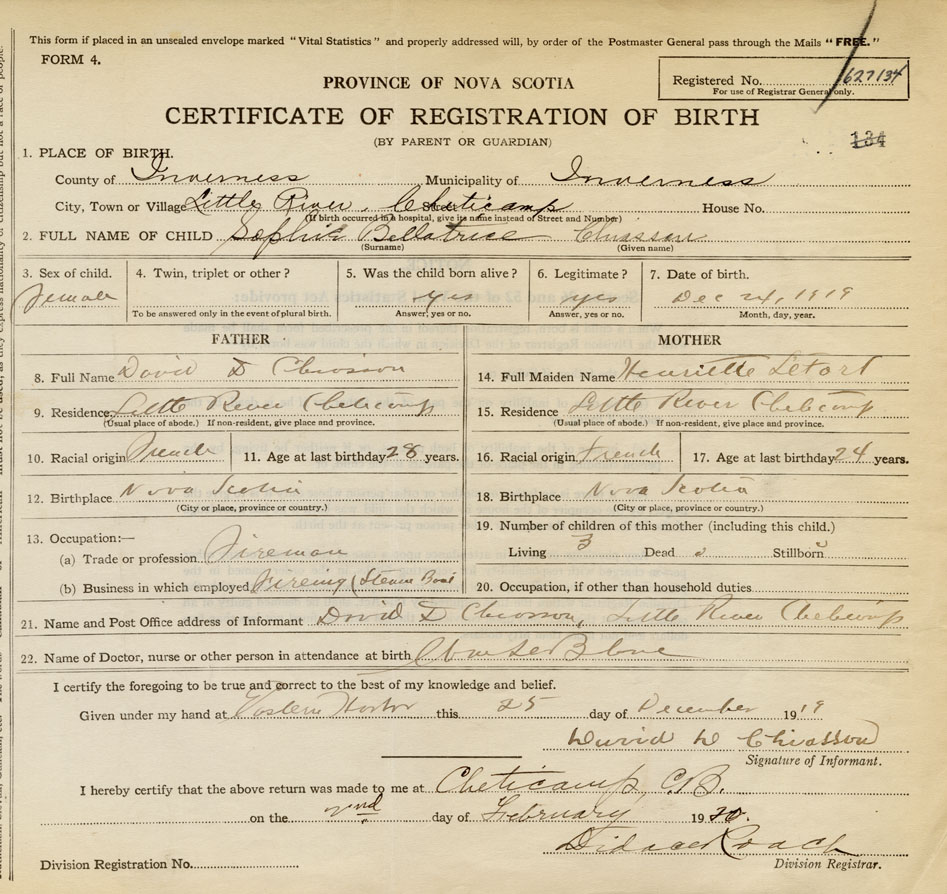 This form if placed in an unsealed envelope marked "Vital Statistics" and properly addressed will, by order of the Postmaster General pass through the Mails "FREE."
FORM 4.
Registered No. 627134
For use of Registrar General only.
PROVINCE OF NOVA SCOTIA
CERTIFICATE OF REGISTRATION OF BIRTH
(BY PARENT OR GUARDIAN)
134
1. PLACE OF BIRTH.
County of Inverness Municipality of Inverness
City, Town or Village Little River, Cheticamp Street House No.
(If birth occurred in a hospital, give its name instead of Street and Number)
2. FULL NAME OF CHILD Sophie Bellatrice Chiasson
(Surname) (Given name)
3. Sex of child. 4. Twin, triplet or other? 5. Was the child born alive? 6. Legitimate? 7. Date of birth.
Female yes yes Dec 24, 1919
To be answered only in the event of plural birth. Answer, yes or no. Answer, yes or no. Month, day, year.
FATHER
8. Full Name David D Chiasson
9. Residence Little River Cheticamp
(Usual place of abode.) If non-resident, give place and province.
10. Racial origin French 11. Age at last birthday 28 years.
12. Birthplace Nova Scotia
(City or place, province or country.)
13. Occupation:—
(a) Trade or profession Fireman
(b) Business in which employed Fireing (Steam Boat
MOTHER
14. Full Maiden Name Henriette LeFort
15. Residence Little River Cheticamp
(Usual place of abode.) If non-resident, give place and province.
16. Racial origin French 17. Age at last birthday 24 years.
18. Birthplace Nova Scotia
(City or place, province or country.)
19. Number of children of this mother (including this child.)
Living 3 Dead Stillborn
20. Occupation, if other than household duties
21. Name and Post Office address of Informant David D Chiasson, Little River Cheticamp
22. Name of Doctor, nurse or other person in attendance at birth
I certify the foregoing to be true and correct to the best of my knowledge and belief.
Given under my hand at Eastern Harbor this 25 day of December 1919
David D Chiasson
Signature of Informant.
I hereby certify that the above return was made to me at Cheticamp, C.B.
on the 2nd day of February 1920.
Didace Roach
Division Registration No. Division Registrar.